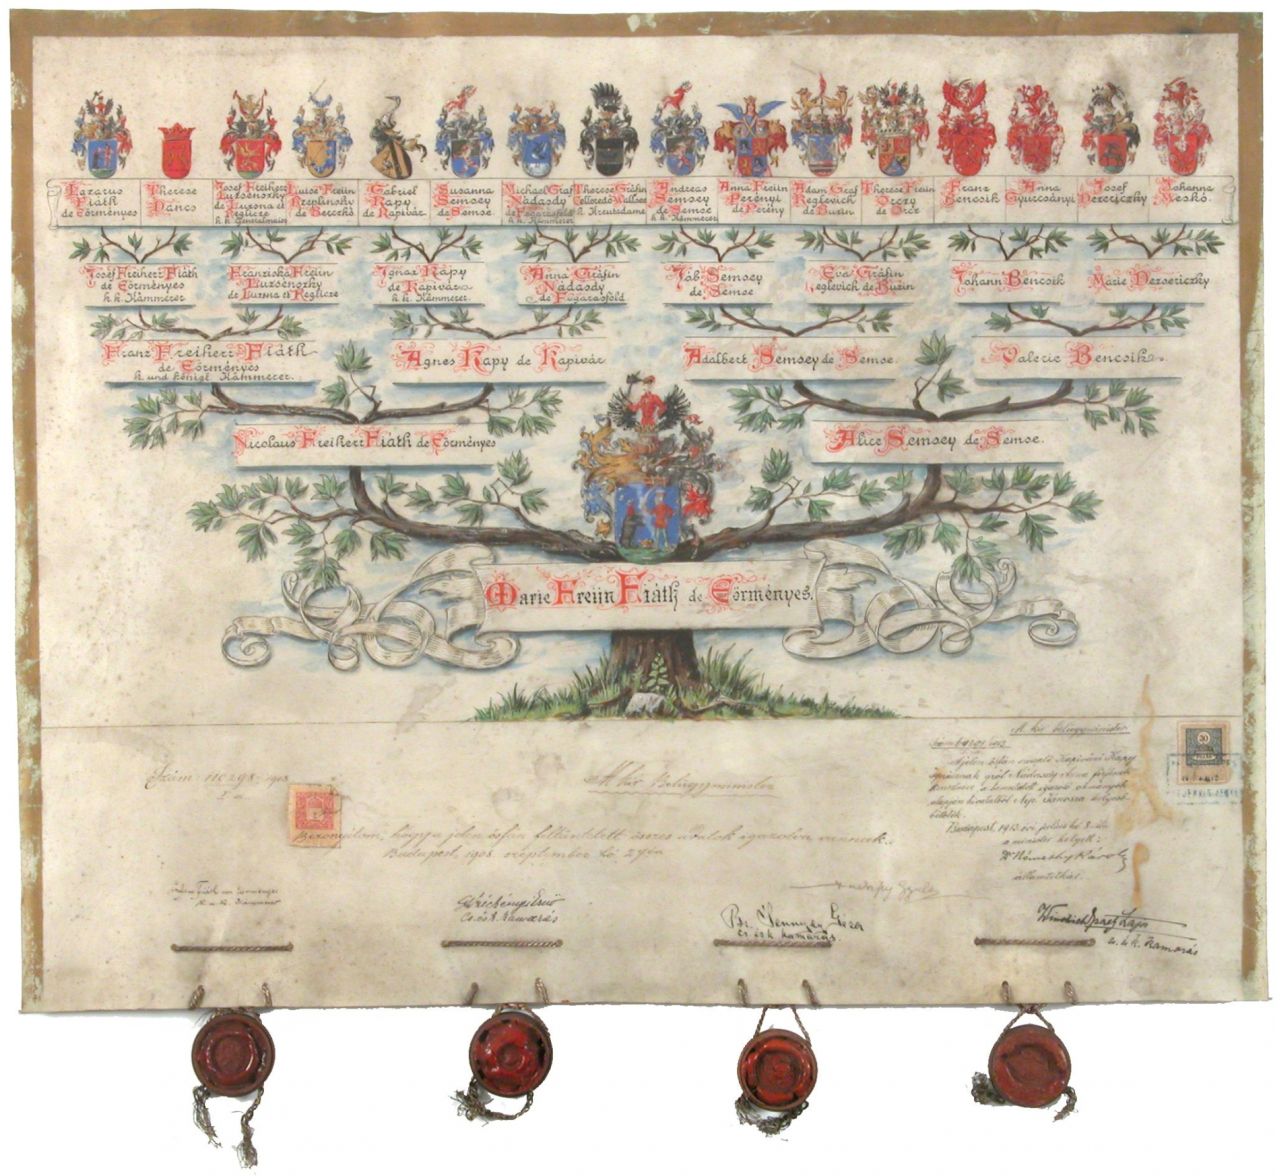 Lazarus
Fiáth
de Eörményes
Therese
Dancs
Josef Freiherr
Luzsénszky
de Luzsna et
Reglicze
k. k. Generalmajor
Luise Freiin
Rzeplinsky
de Berezkó
Gabriel
Kapy
de Kapivár
Susanna
Semsey
de Semse
Michael Graf
Nádasdy
de Fogarasföld
k. k. Kämmerer
Therese Gräfin
Colloredo Wallsee
k. k. Kreutzdame
Andreas
Semsey
de Semse
k. k. Kämmerer
Anna Freiin
Perényi
de Perény
Adam Graf
Reglevich
de Buzin
Therese Freiin
Orczy
de Orcz
Franz
Bencsik
Anna
Gyurcsányi
Josef
Dezericzky
Johanna
Meskó.
Josef Freiherr Fiáth
de Eörményes
k. k. Kämmerer
Franziska Freiin
Luzsénszky
de Luzsna et Reglicze
Ignaz Kapy
de Kapivár
k. k. Kämmerer.
Anna Gräfin
Nádasdy
de Fogarasföld
Jób Semsey
de Semse
Eva Gräfin
Reglevich de Buzin
Johann Bencsik
Marie Dezsericzky
Franz Freiherr Fiáth
de Eörményes
k. und königl. Kämmerer.
Agnes Kapy de Kapivár
Adalbert Semsey de Semse.
Valerie Bencsik.
Nicolaus Freiherr Fiáth de Eörményes
Alice Semsey de Semse.
Marie Freiin Fiáth de Eörményes.
M. kir. belügyminister
Szám: 110298. 1908
M. kir. Belügyminister
Bizonyitom, hogy a jelen ősfán feltüntetett összes adatok igazolva vannak.
Budapest, 1908. szeptember hó 29én
Budapest, 1913. évi
a minister helyett:
Dr Némethy Károly
államtitkár.
Széchényi
Cs. és k. kamarás
Br. Sennyey Géza
cs. és k. kamarás.
k. u. k. Kämmerer
cs. és k. Kamarás